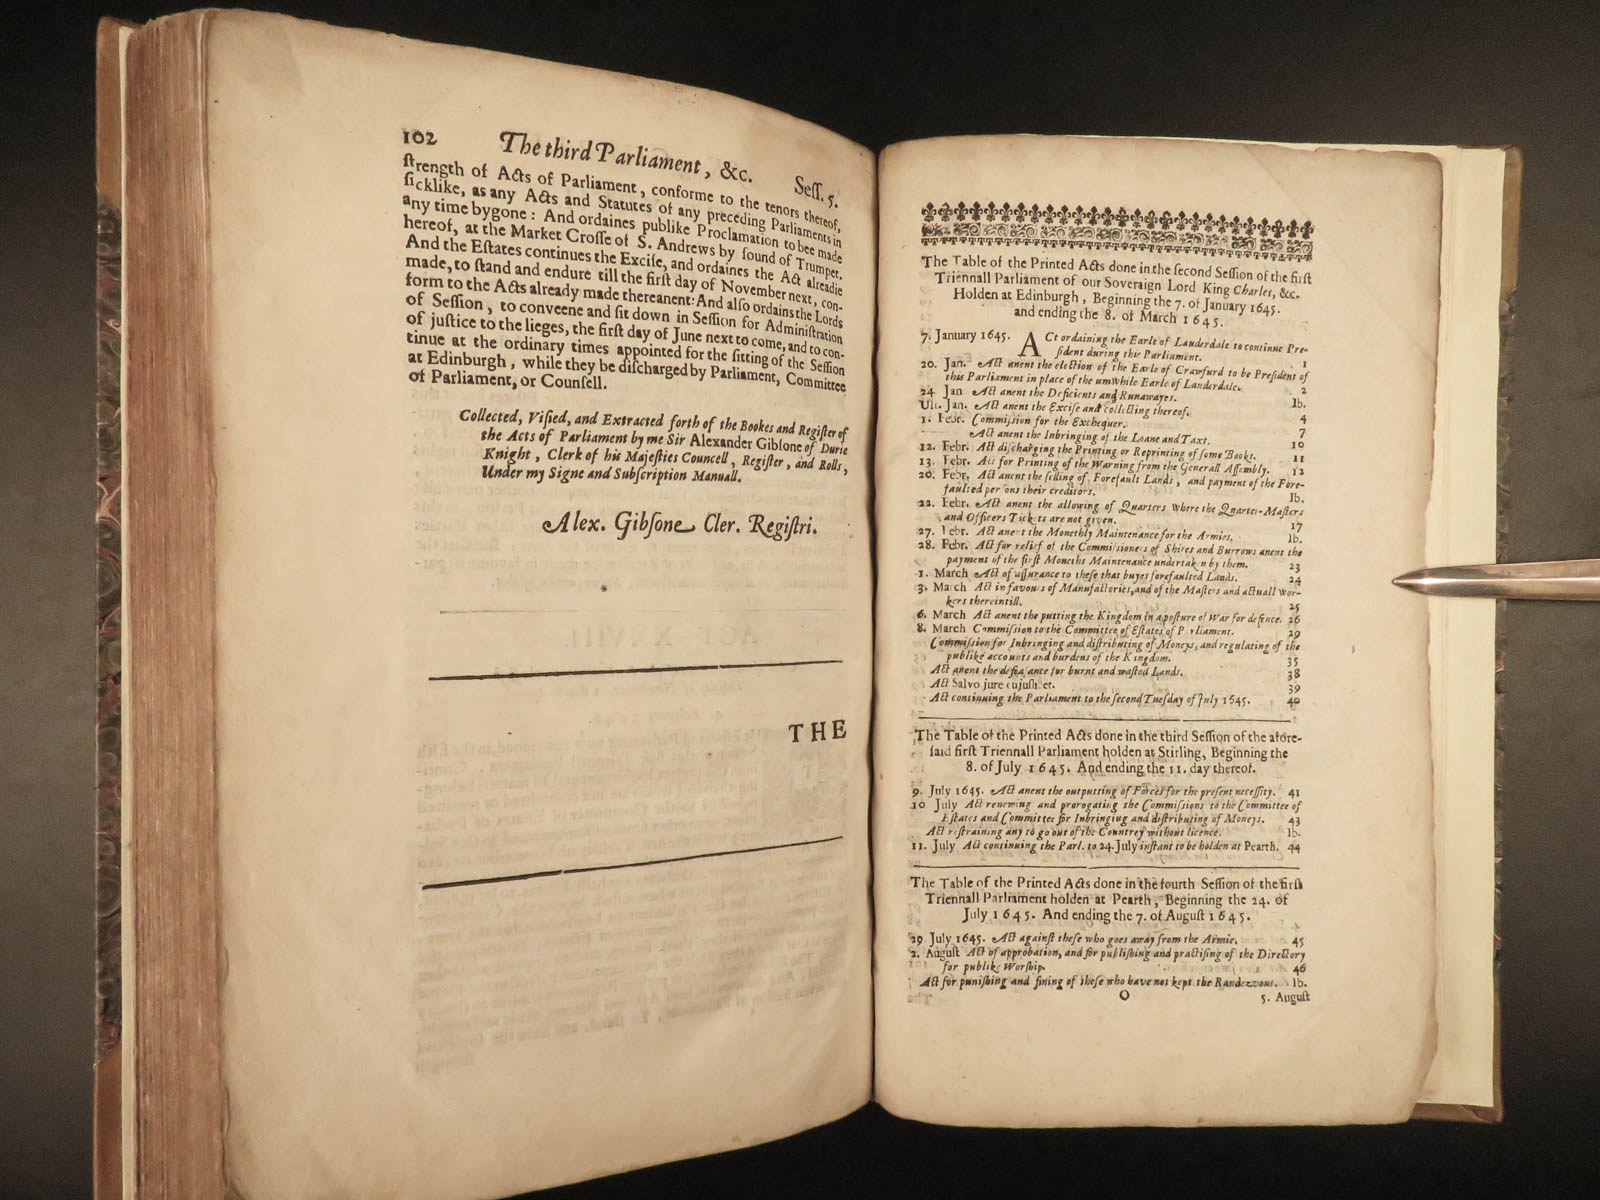 102 The third Parliament, &c. Seſſ. 5.
ſtrength of Acts of Parliament, conforme to the tenors thereof,
ſicklike, as any Acts and Statutes of any preceding Parliaments in
any time bygone: And ordaines publike Proclamation to bee made
hereof, at the Market Croſſe of S. Andrews by ſound of Trumpet.
And the Eſtates continues the Exciſe, and ordaines the Act alreadie
made, to ſtand and endure till the firſt day of November next, con-
form to the Acts already made thereanent: And alſo ordains the Lords
of Seſſion, to conveene and ſit down in Seſſion for Adminiſtration
of juſtice to the lieges, the firſt day of June next to come, and to con-
tinue at the ordinary times appointed for the ſitting of the Seſſion
at Edinburgh, while they be diſcharged by Parliament, Committee
of Parliament, or Counſell.
Collected, Viſied, and Extracted forth of the Bookes and Regiſter of
the Acts of Parliament by me Sir Alexander Gibſone of Durie
Knight, Clerk of his Majeſties Councell, Regiſter, and Rolls,
Under my Signe and Subſcription Manuall.
Alex. Gibſone Cler. Regiſtri.
THE
The Table of the Printed Acts done in the ſecond Seſſion of the firſt
Triennall Parliament of our Soveraign Lord King Charles, &c.
Holden at Edinburgh, Beginning the 7. of January 1645.
and ending the 8. of March 1645.
7. January 1645. ACt ordaining the Earle of Lauderdale to continue Pre-
ſident during this Parliament. 1
20. Jan. Act anent the election of the Earle of Crawfurd to be Preſident of
this Parliament in place of the umwhile Earle of Lauderdale. 2
24 Jan Act anent the Deficients and Runawayes. Ib.
Ult. Jan. Act anent the Exciſe and collecting thereof. 4
1. Febr. Commiſſion for the Exchequer. 7
Act anent the Inbringing of the Loane and Taxt. 10
12. Febr. Act diſcharging the Printing or Reprinting of ſome Books. 11
13. Febr. Act for Printing of the Warning from the Generall Aſſembly. 12
20. Febr. Act anent the ſelling of Forefault Lands, and payment of the Fore-
faulted perſons their creditors. Ib.
22. Febr. Act anent the allowing of Quarters where the Quarter-Maſters
and Officers Tickets are not given. 17
27. Febr. Act anent the Monethly Maintenance for the Armies. Ib.
28. Febr. Act for relief of the Commiſſioners of Shires and Burrows anent the
payment of the firſt Moneths Maintenance undertaken by them. 23
1. March Act of aſſurance to theſe that buyes forefaulted Lands. 24
3. March Act in favours of Manufactories, and of the Maſters and actuall wor-
kers thereintill. 25
6. March Act anent the putting the Kingdom in a poſture of War for defence. 26
8. March Commiſſion to the Committee of Eſtates of Parliament. 29
Commiſſion for Inbringing and diſtributing of Moneys, and regulating of the
publike accounts and burdens of the Kingdom. 35
Act anent the defalance for burnt and waſted Lands. 38
Act Salvo jure cujuſlibet. 39
Act continuing the Parliament to the ſecond Tueſday of July 1645. 40
The Table of the Printed Acts done in the third Seſſion of the afore-
ſaid firſt Triennall Parliament holden at Stirling, Beginning the
8. of July 1645. And ending the 11. day thereof.
9. July 1645. Act anent the outputting of Forces for the preſent neceſſity. 41
10 July Act renewing and prorogating the Commiſſions to the Committee of
Eſtates and Committee for Inbringing and diſtributing of Moneys. 43
Act reſtraining any to go out of the Countrey without licence. Ib.
11. July Act continuing the Parl. to 24. July inſtant to be holden at Pearth. 44
The Table of the Printed Acts done in the fourth Seſſion of the firſt
Triennall Parliament holden at Pearth, Beginning the 24. of
July 1645. And ending the 7. of Auguſt 1645.
29. July 1645. Act againſt theſe who goes away from the Armie. 45
2. Auguſt Act of approbation, and for publiſhing and practiſing of the Directory
for publike Worſhip. 46
Act for puniſhing and fining of theſe who have not kept the Randezvous. Ib.
O 5. Auguſt